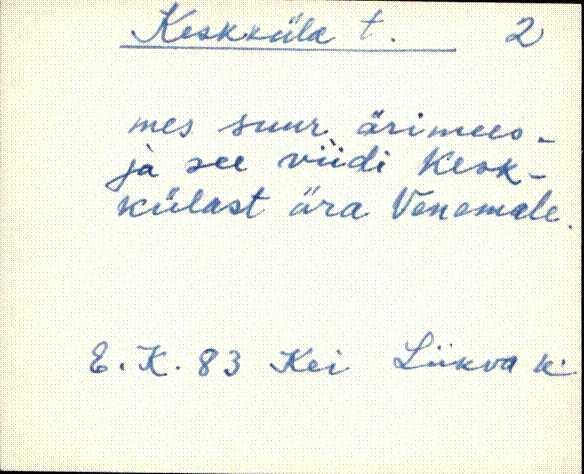 Keskküla t. 2
mes suur ärimees -
ja see viidi Kesk-
külast ära Venemale.
E. K. 83 Kei Liikva k.